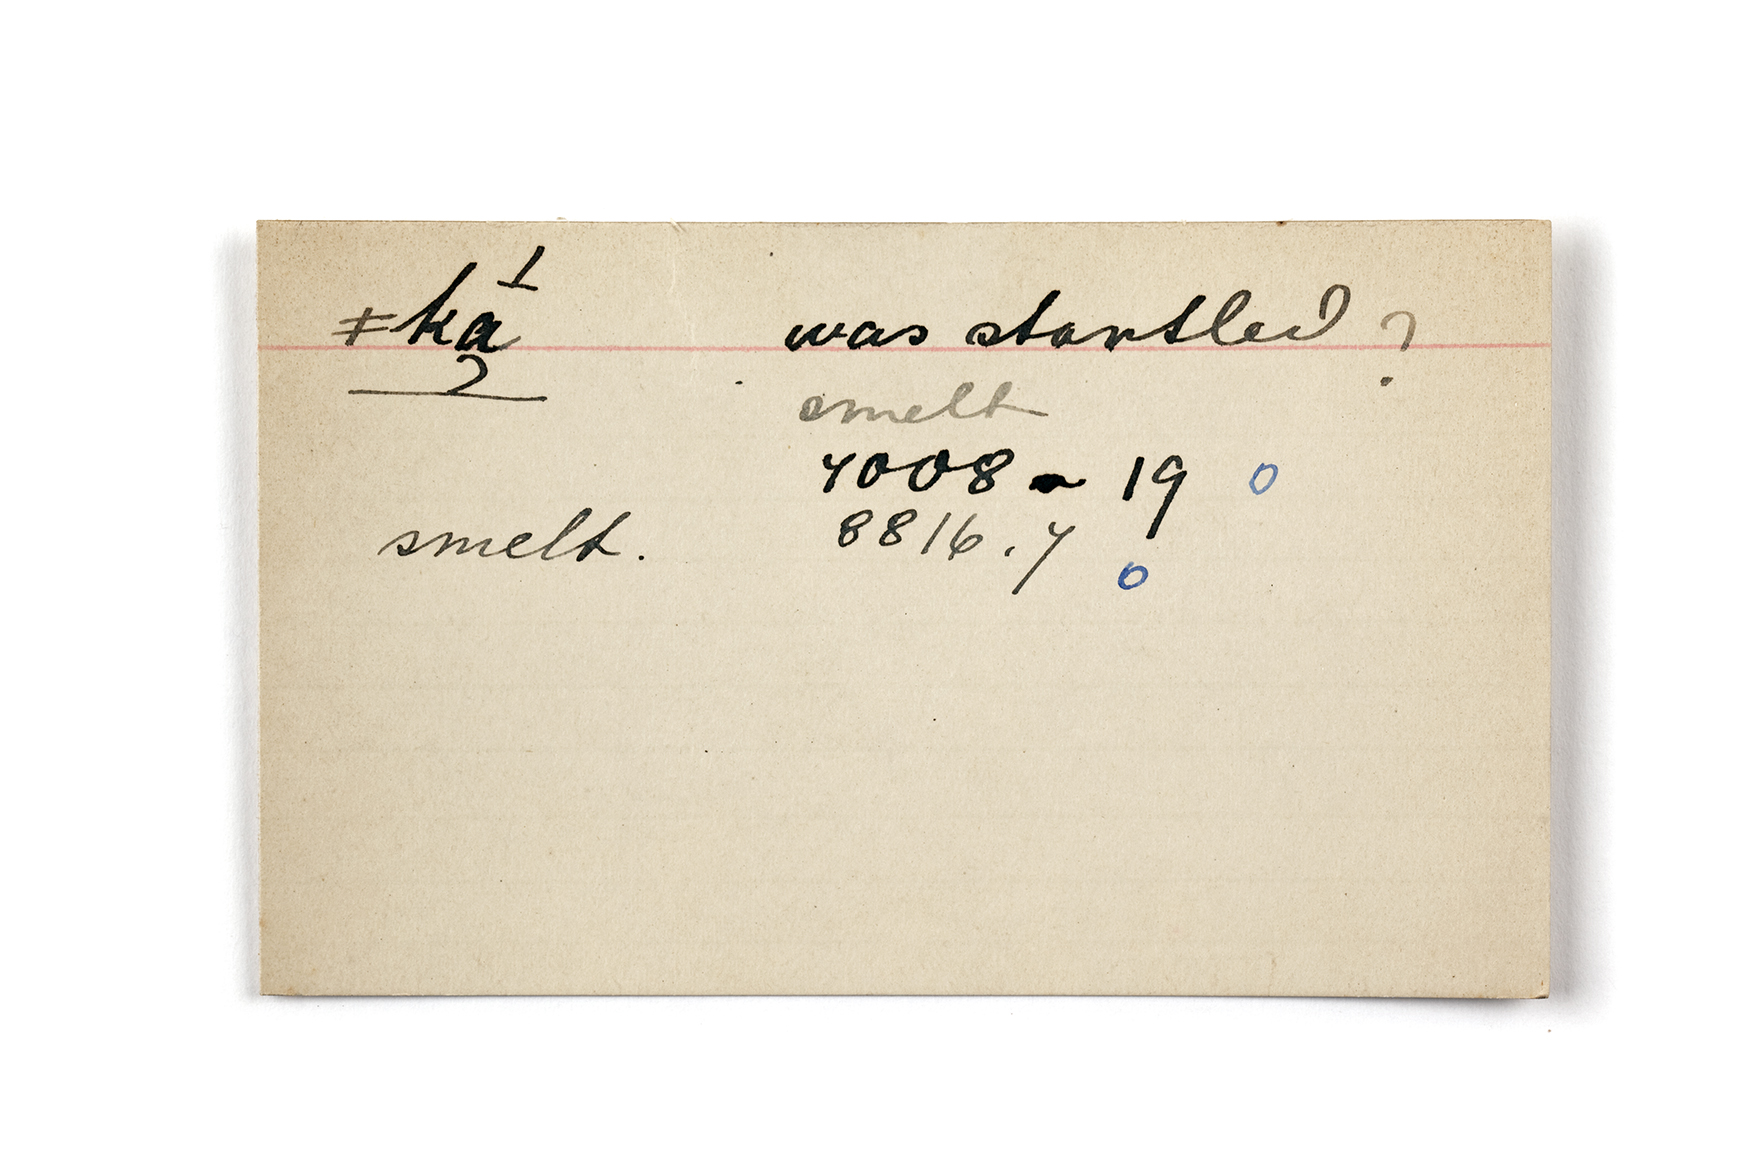 ǂka¹₂ was startled ?
smelt
7008 - 19 o
smelt. 8816.7
o